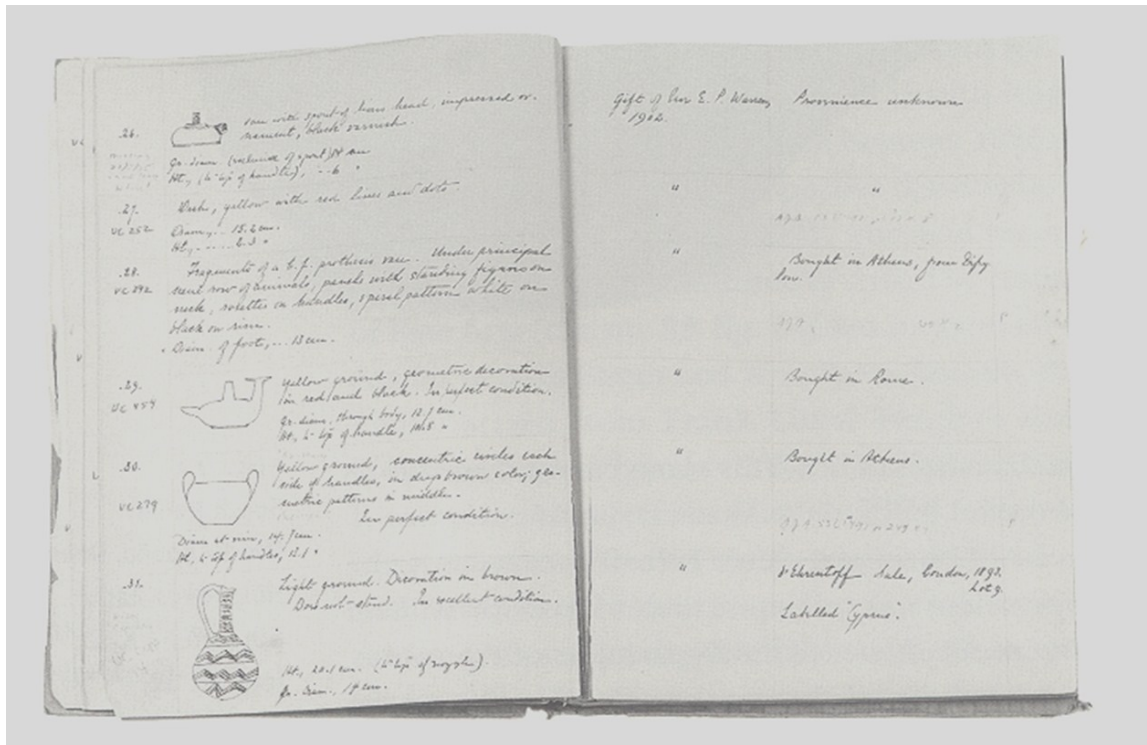 .26.
vase with spout of lion's head, impressed or-
nament, black varnish.
Gr. diam. (exclusive of spout)
Ht., (to top of handles), .. 6 "
.27.
Dish, yellow with red lines and dots
VC 252
Diam., .. 15.2 cm.
Ht., ..... 2.3 "
.28.
Fragments of a b.f. prothesis vase. Under principal
VC 342
row of animals, panels with standing figures on
neck, rosettes on handles, spiral pattern white on
black on rim.
Diam. of foot, ... 13 cm.
.29.
Yellow ground, geometric decoration
in red and black. In perfect condition.
Gr. diam. through body, 12.7 cm.
Ht., to top of handle, 10.5 "
.30.
Yellow ground, concentric circles each
side of handles, in deep brown color; geo-
VC 279
metric patterns in middle.
In perfect condition.
Diam. at rim, 14.7 cm.
Ht., to top of handles, 13.1 "
.31.
Light ground. Decoration in brown.
Does not stand. In excellent condition.
Ht., 20.1 cm. (to top of nozzle).
Gr. diam., 14 cm.
Gift of Mr E. P. Warren, Provenience unknown
1902.
" "
" Bought in Athens, from
" Bought in Rome.
" Bought in Athens.
" Sale, London, 1893.
Lot 9.
Labelled "Cyprus".